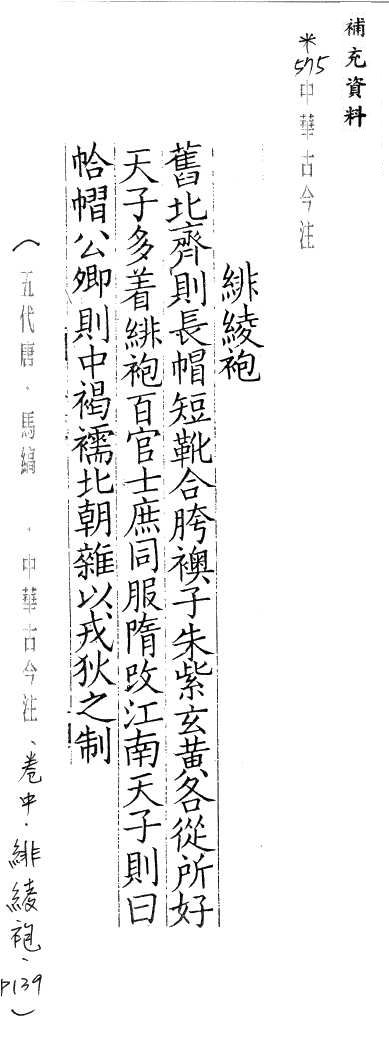 補充資料
*575中華古今注
緋綾袍
舊北齊則長帽短靴合胯襖子朱紫玄黃各從所好
天子多着緋袍百官士庶同服隋改江南天子則曰
帢帽公卿則中褐襦北朝雜以戎狄之制
(五代唐.馬縞.中華古今注、卷中.緋綾袍、P139)